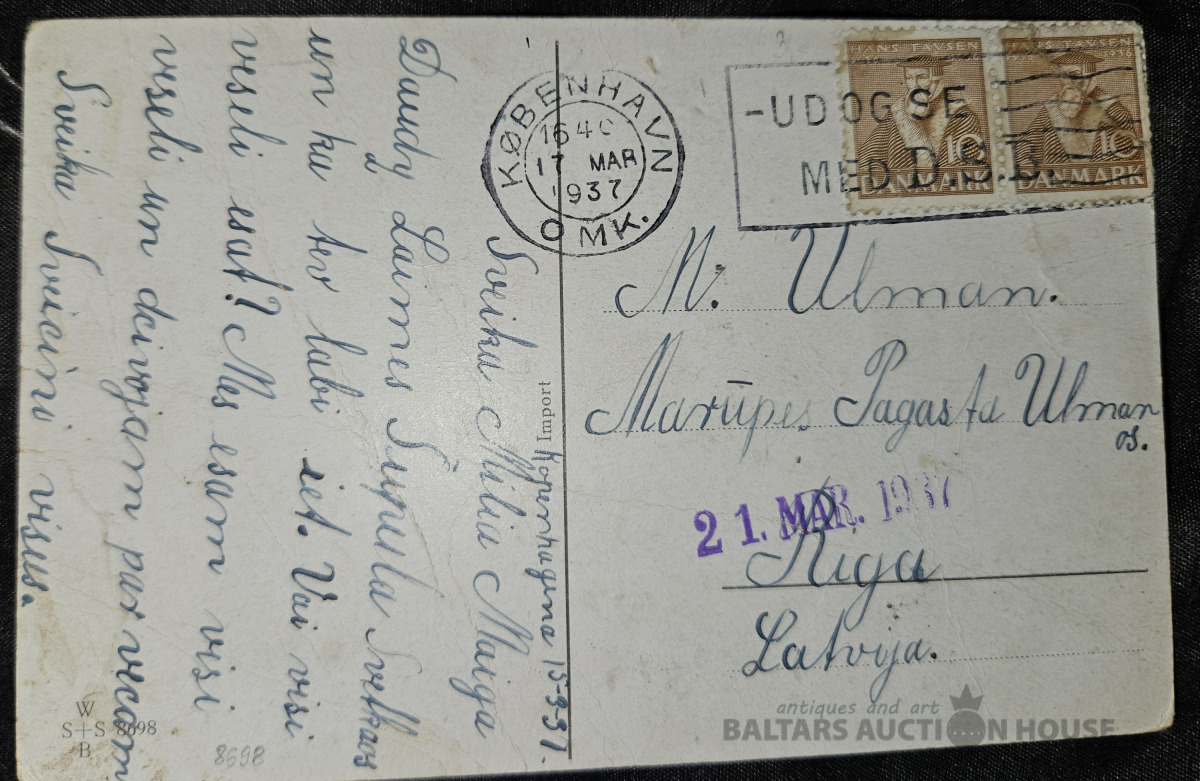 KØBENHAVN
16 40
17 MAR
1937
OMK.
-UD OG SE
MED D.S.B.
HANS TAVSEN
10
DANMARK
HANS TAVSEN
1936
10
DANMARK
M. Ulman.
Marūpes Pagasta Ulman
os.
21. MAR. 1937
Rīga
Latvija.
Import
Kopenhagena 15-3-37.
Sveika Milia Maiga
Daudz Laimes Svētkos
un ka tev labi iet. Vai visi
veseli esat? Mes esam visi
veseli un dzivojam par vecam
Sveika Sveicini visus.
W
S+S 8698
B
8698
antiques and art
BALTARS AUCTION HOUSE